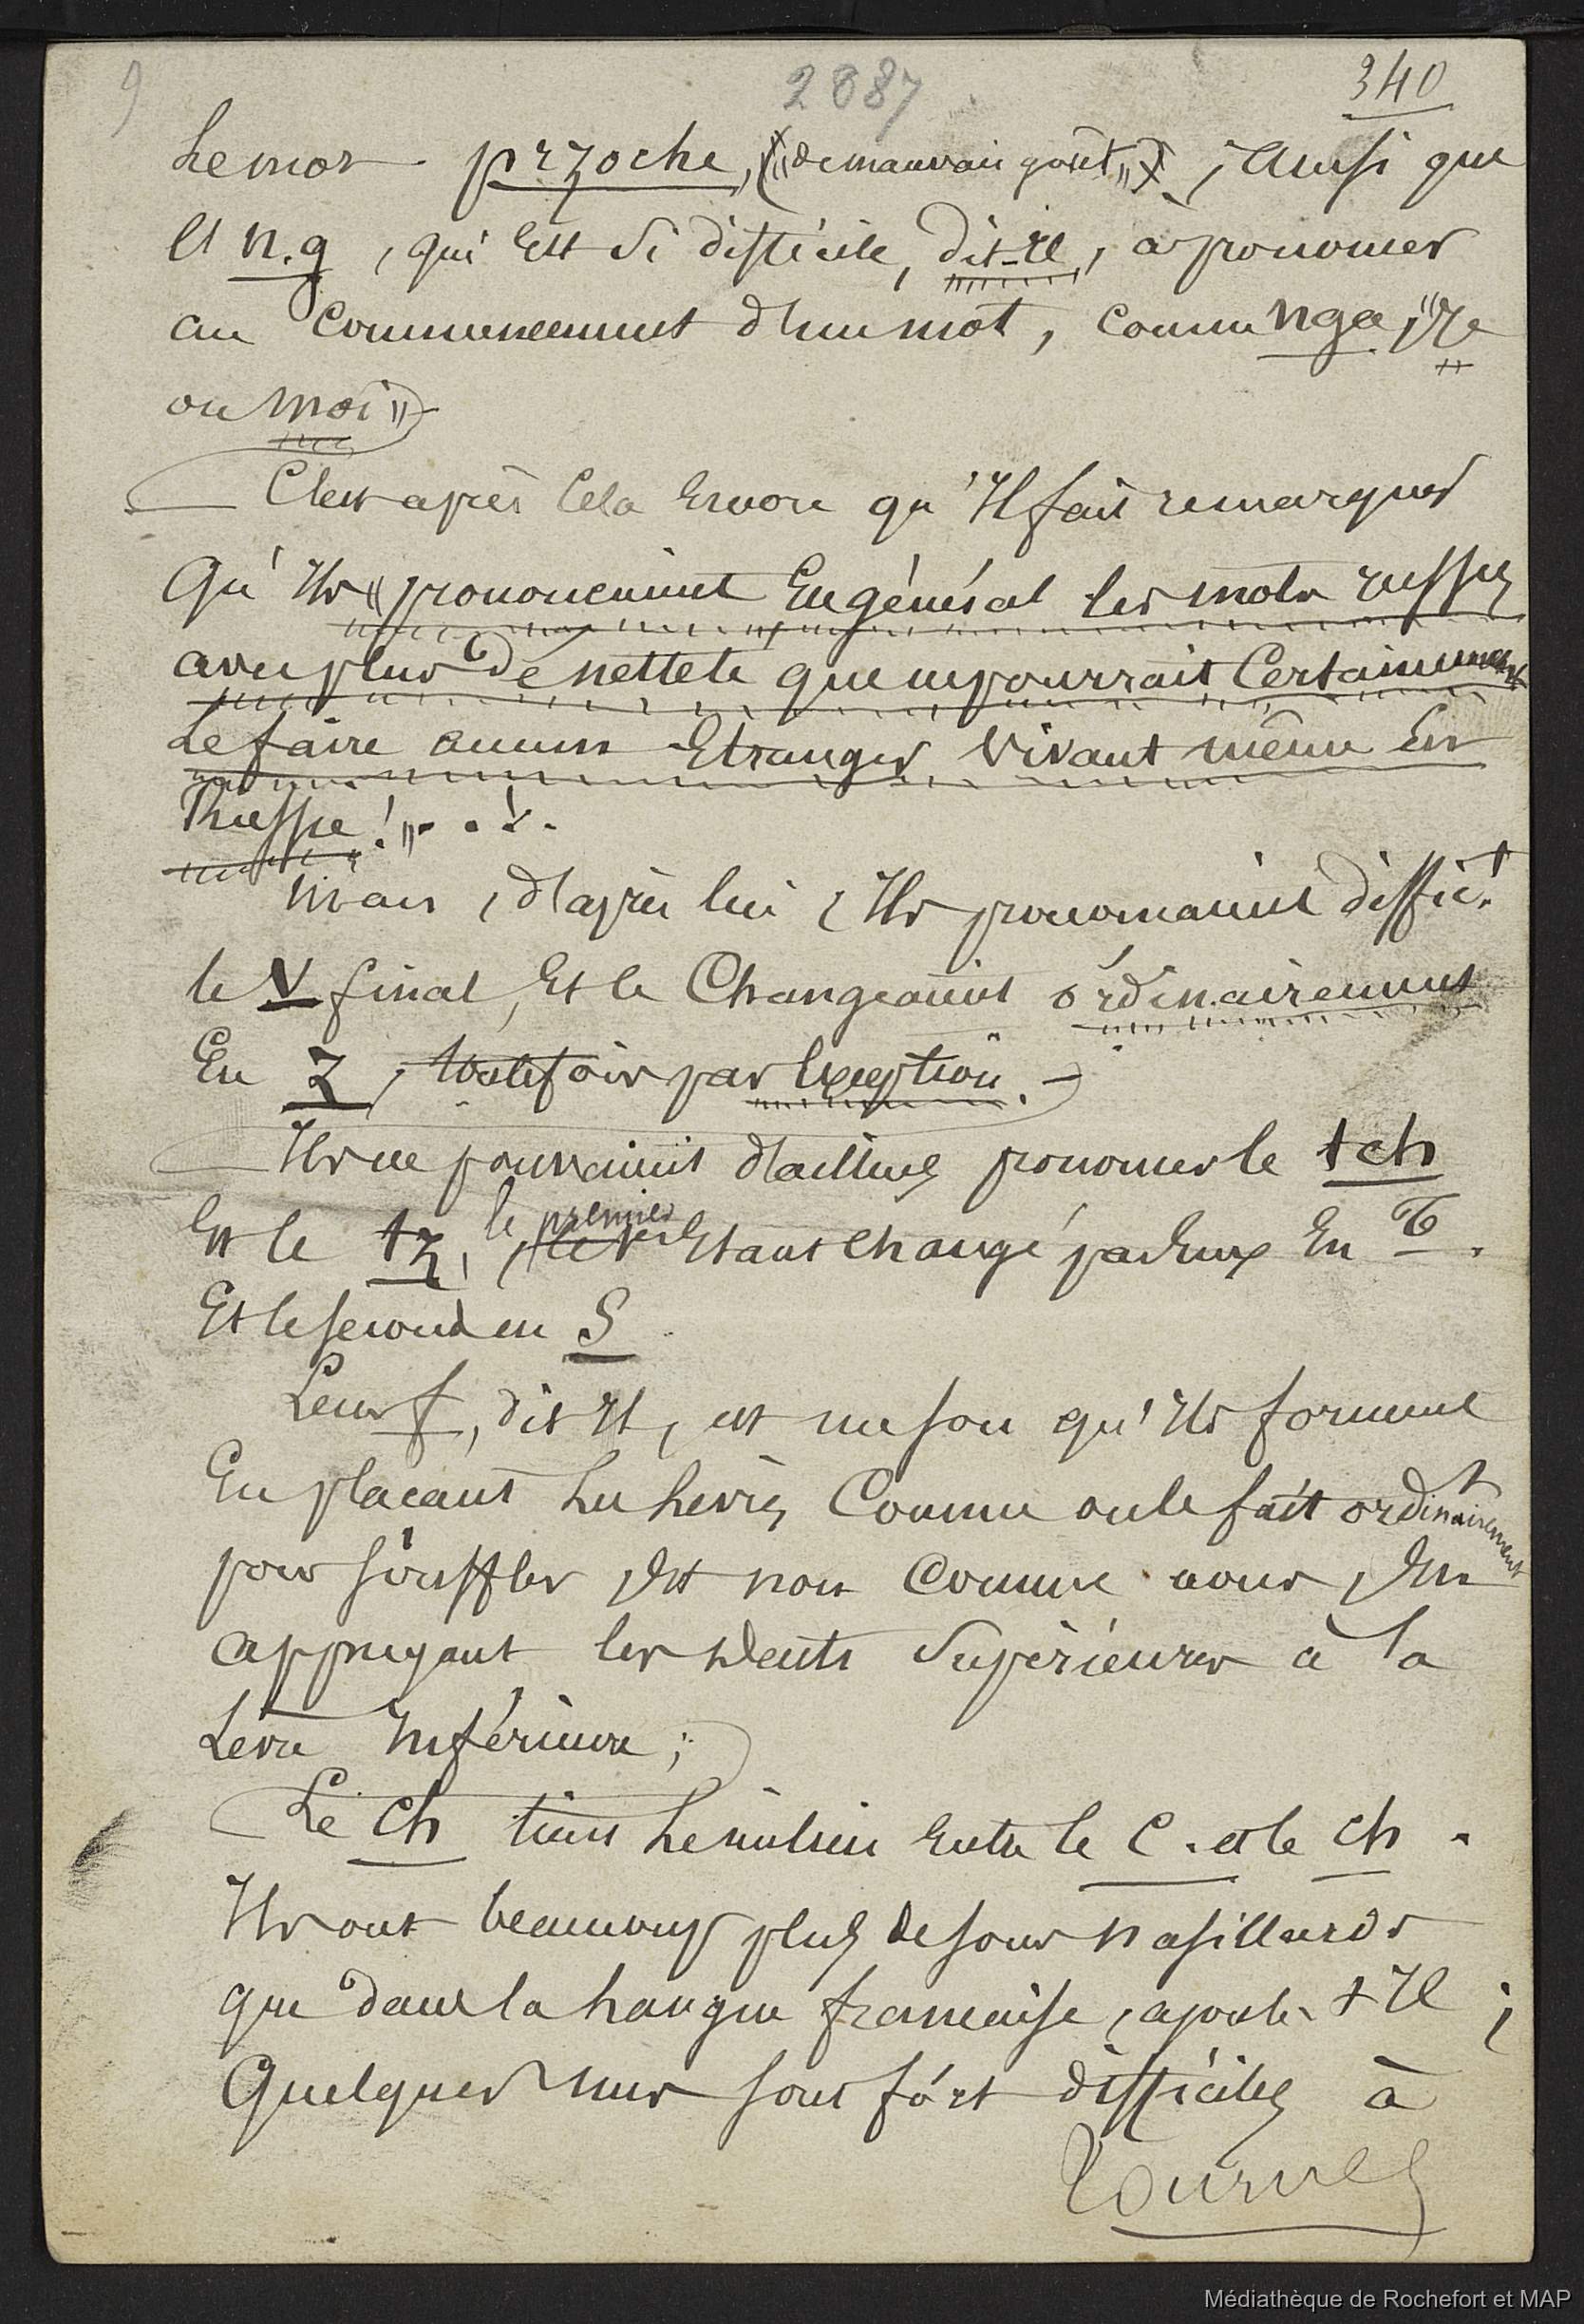 9 2887 340
Le mot przoche, ("de mauvais goût") ; Ainsi que
Et n.g, qui Est si difficile, dit-Il, à prononcer
au Commencement d'un mot, comme nga, "Je
ou moi"
C'est après Cela Encore qu'Il fait remarquer
Qu'Ils "prononcaient En général les mots russes
avec plus de netteté que ne pourrait Certainement
Le faire aucun Etranger Vivant même En
Russie!"...
Mais, d'après lui, Ils prononcaient diffic.t
le V final, Et le Changeaient ordinairement
En Z, toutefois par Exception.
Ils ne pouvaient d'ailleurs prononcer le tch
Et le tz, le premier Etant Changé par Eux En T.
Et le second en S
Leur f, dit Il, est un son qu'Ils forment
En placant Les Lèvres Comme on le fait ordinairement
pour souffler, Et non Comme nous, En
appuyant les Dents Supérieures à la
Lèvre Inférieure;
Le Ch tient Le milieu Entre le C. et le ch.
Ils ont beaucoup plus de sons nasillards
que dans la Langue francaise, ajoute-t-Il;
Quelques uns sont fort difficiles à
Tournez
Médiathèque de Rochefort et MAP